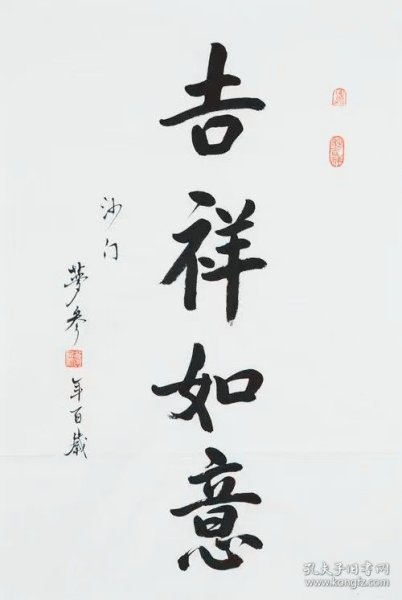 吉祥如意
沙门
梦参
年百岁
孔夫子旧书网
www.kongfz.com